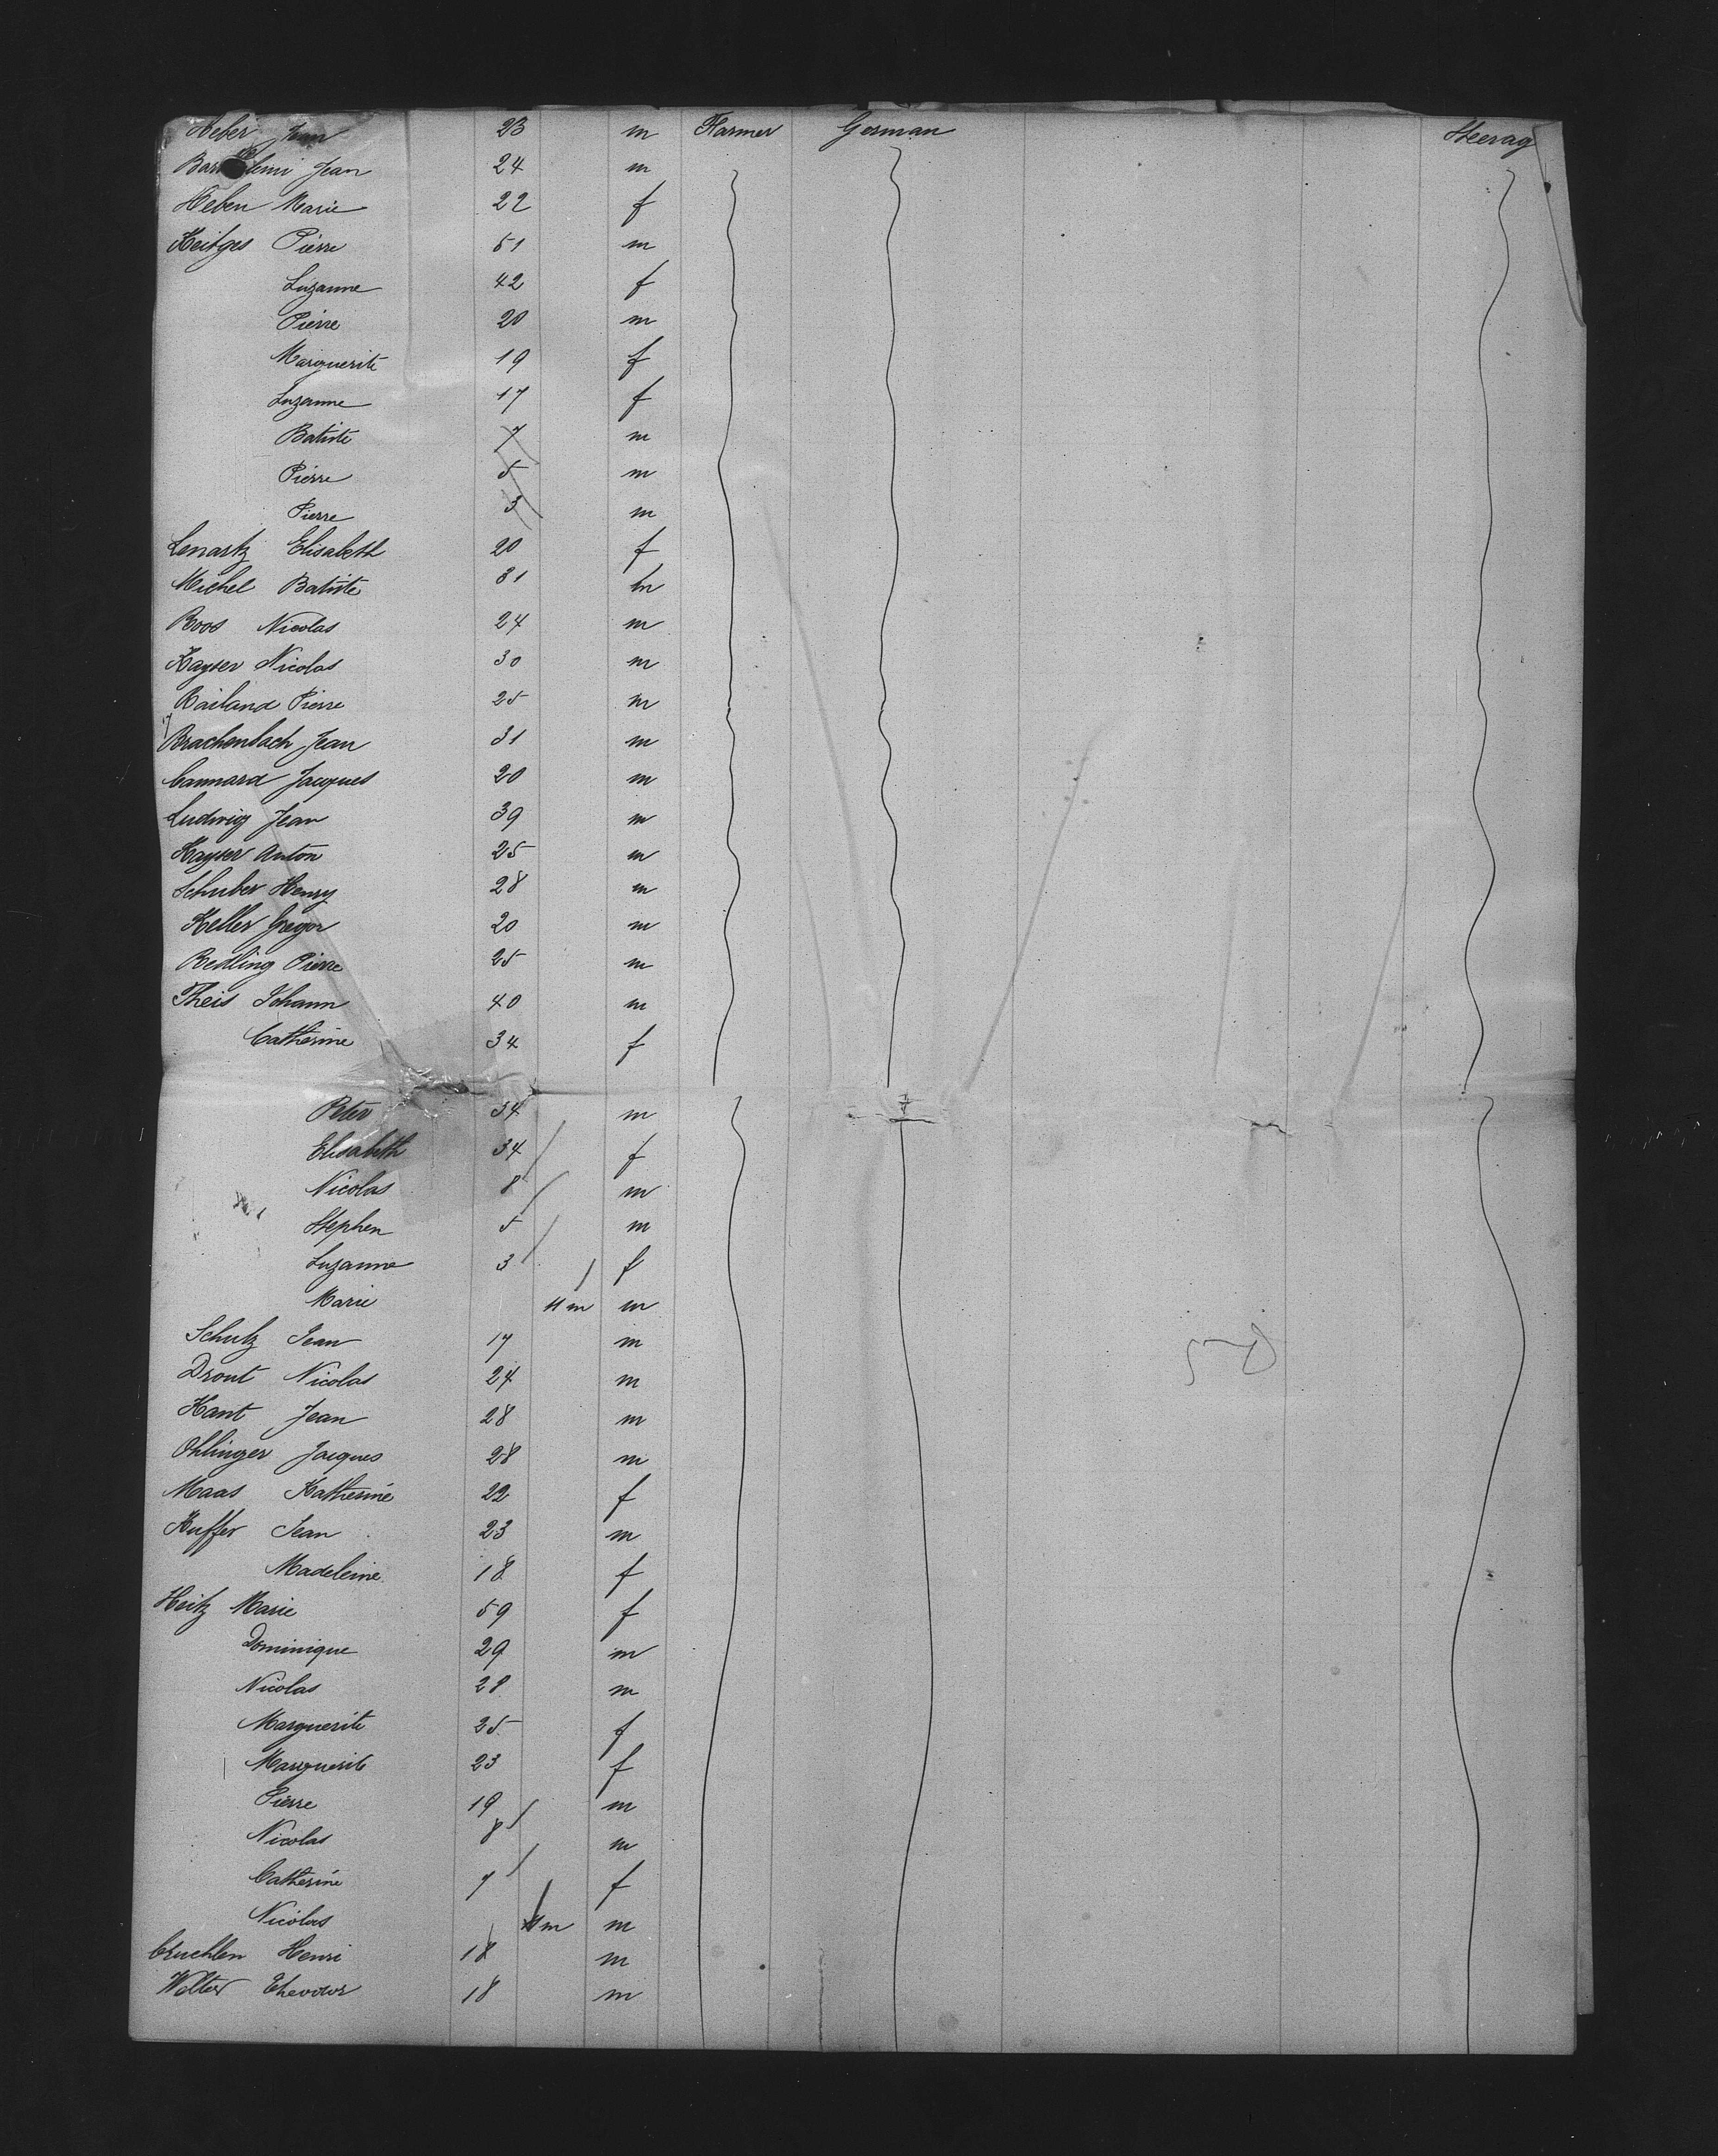 Heber Jean 23 m Farmer German Steerag
Jean 24 m
Heben Marie 22 f
Keitges Pierre 51 m
Suzanne 42 f
Pierre 20 m
Marguerite 19 f
Suzanne 17 f
Batiste 7 m
Pierre 5 m
Pierre 3 m
Lenartz Elisabeth 20 f
Michel Batiste 31 m
Roos Nicolas 24 m
Kayser Nicolas 30 m
Railand Pierre 25 m
Brachenbach Jean 31 m
Cannard Jacques 20 m
Ludwig Jean 39 m
Kayser Anton 25 m
Schuber Henry 28 m
Keller Gregor 20 m
Redling Pierre 25 m
Theis Johann 40 m
Catherine 34 f
Peter 34 m
Elisabeth 34 f
Nicolas 8 m
Stephen 5 m
Suzanne 3 f
Marie 11 m m
Schulz Jean 17 m
Drout Nicolas 24 m
Kant Jean 28 m
Ohlinger Jacques 28 m
Maas Katherine 22 f
Kuffer Jean 23 m
Madeleine 18 f
Heitz Marie 59 f
Dominique 29 m
Nicolas 28 m
Marguerite 25 f
Marguerite 23 f
Pierre 19 m
Nicolas 8 m
Catherine 7 f
Nicolas m m
Henri 18 m
Wolter Theodor 18 m